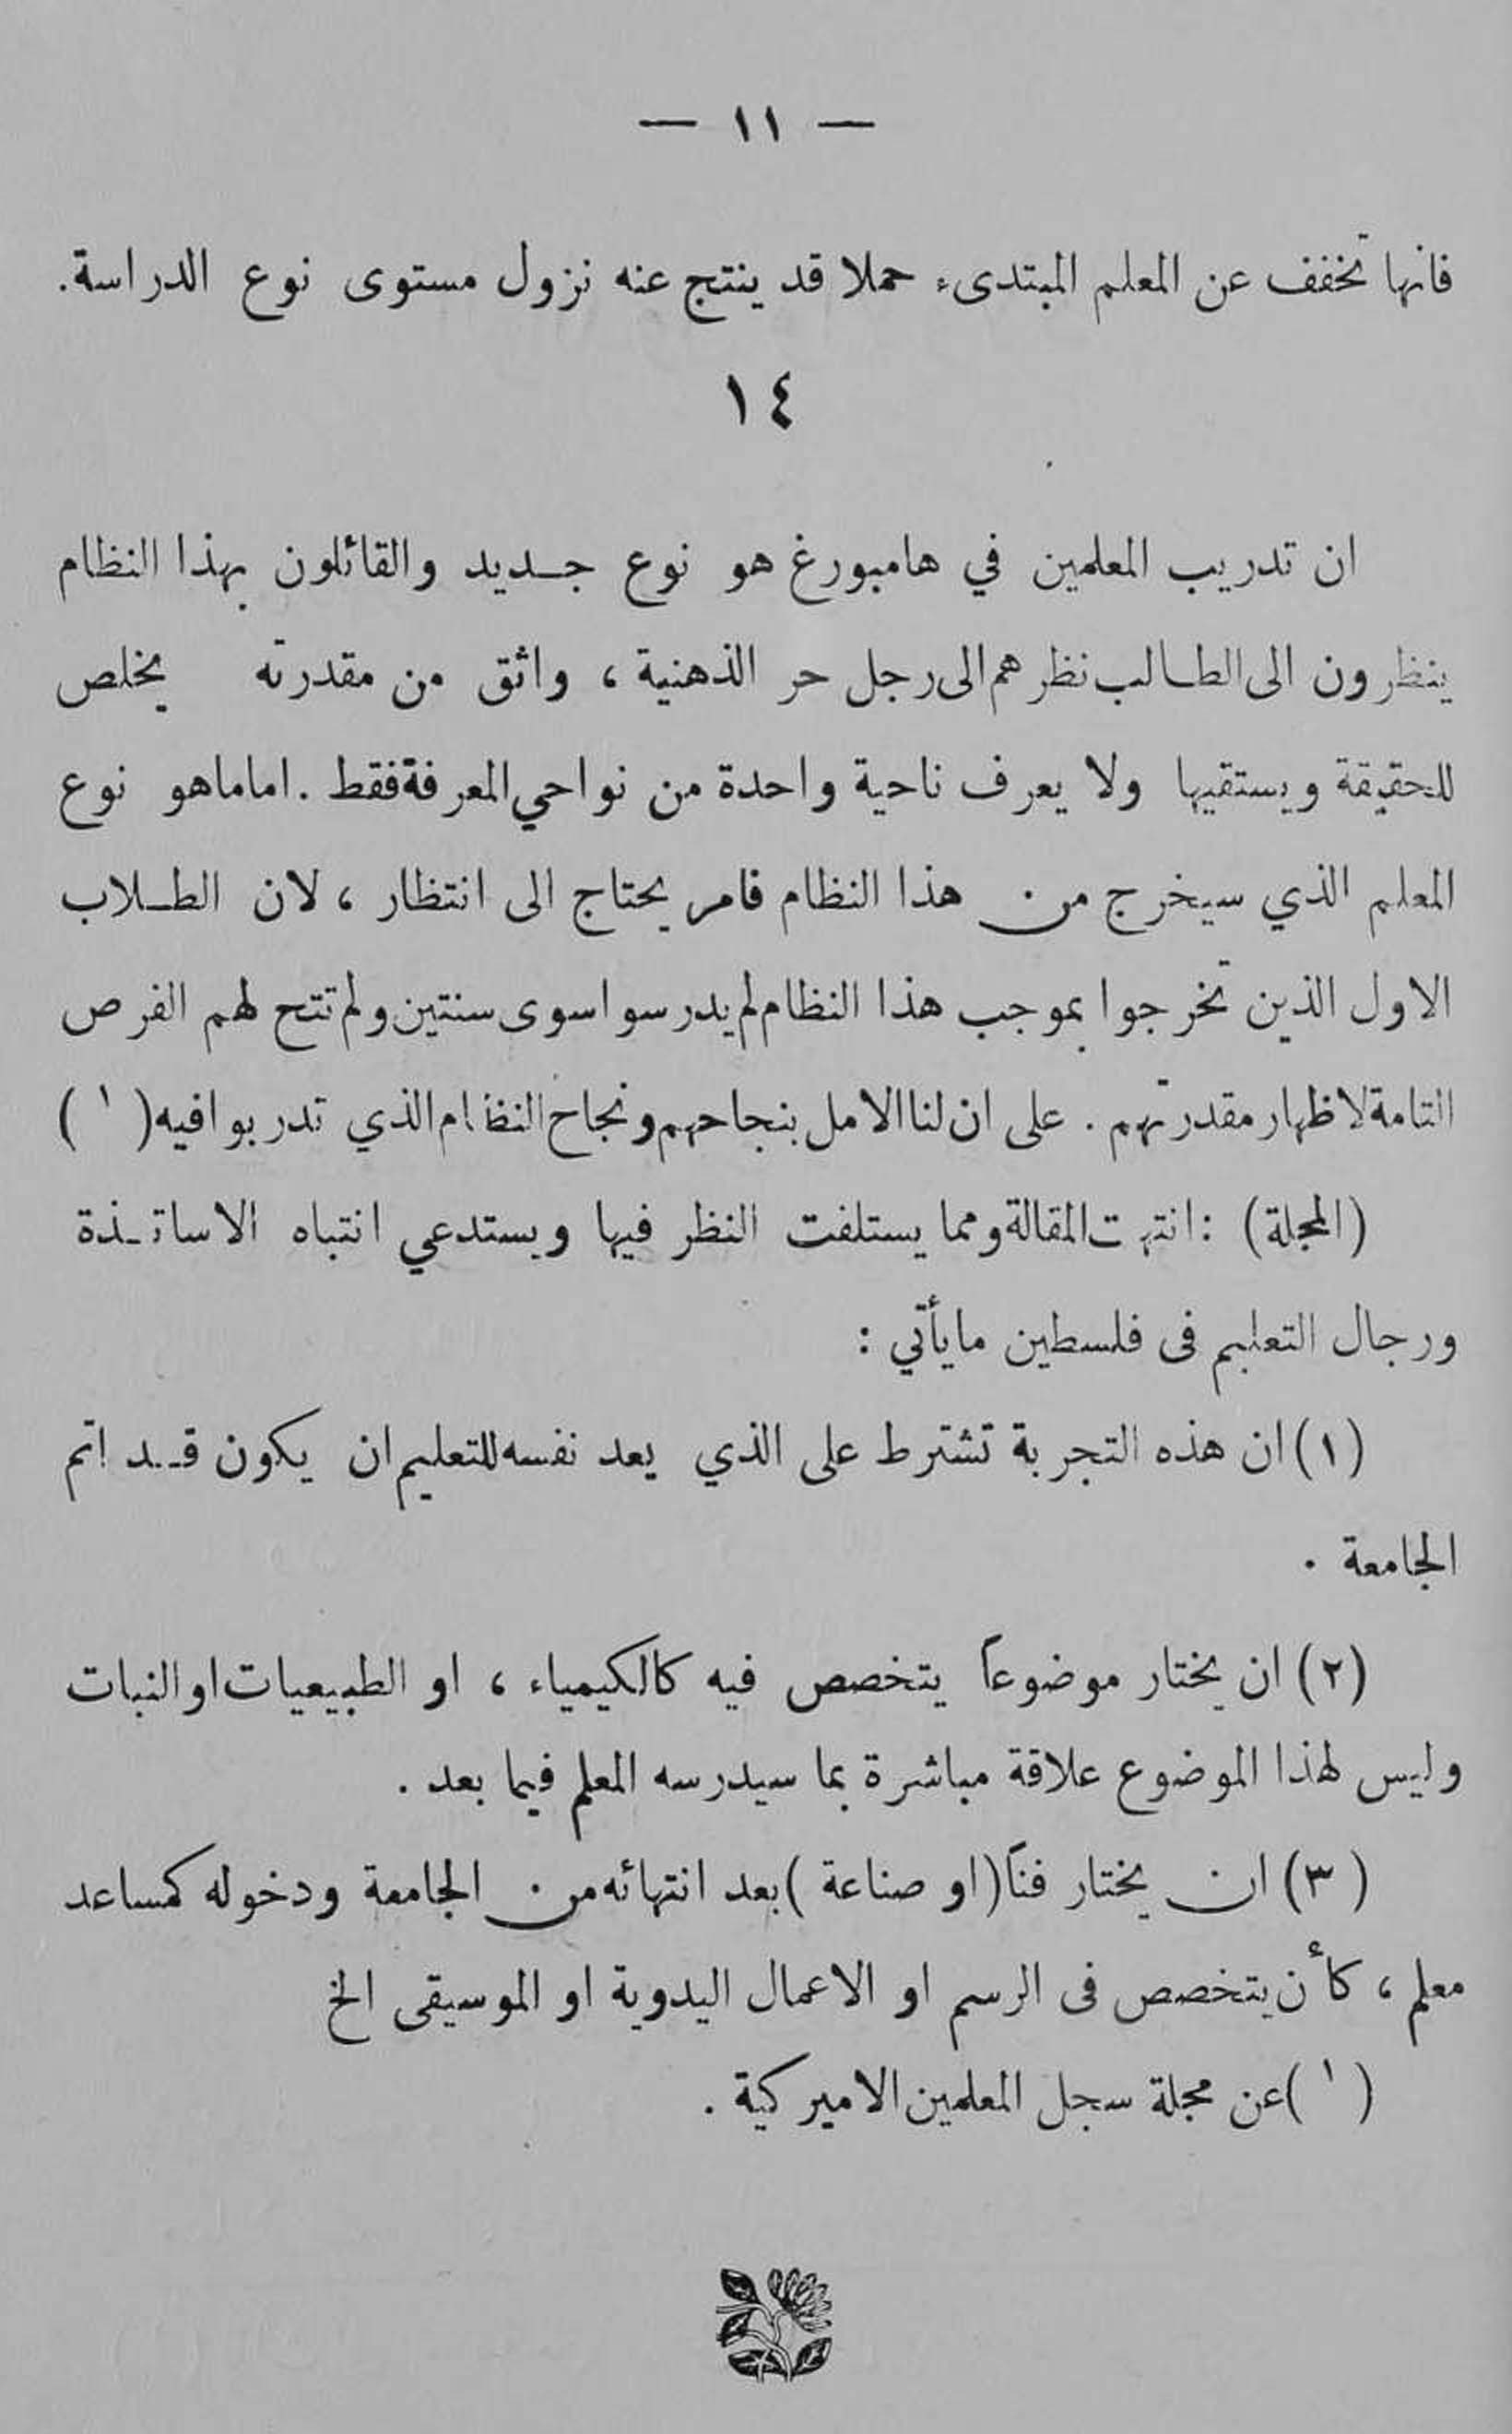 — ١١ —
فانها تخفف عن المعلم المبتدىء حملا قد ينتج عنه نزول مستوى نوع الدراسة.
١٤
ان تدريب المعلمين في هامبورغ هو نوع جديد والقائلون بهذا النظام
ينظرون الى الطالب نظرهم الى رجل حر الذهنية ، واثق من مقدرته يخلص
للحقيقة ويستقيها ولا يعرف ناحية واحدة من نواحي المعرفة فقط . اما ما هو نوع
المعلم الذي سيخرج من هذا النظام فامر يحتاج الى انتظار ، لان الطلاب
الاول الذين تخرجوا بموجب هذا النظام لم يدرسوا سوى سنتين ولم تتح لهم الفرص
التامة لاظهار مقدرتهم . على ان لنا الامل بنجاحهم ونجاح النظام الذي تدربوا فيه (١)
(المجلة) : انتهت المقالة ومما يستلفت النظر فيها ويستدعي انتباه الاساتذة
ورجال التعليم فى فلسطين مايأتي :
(١) ان هذه التجربة تشترط على الذي يعد نفسه للتعليم ان يكون قد اتم
الجامعة .
(٢) ان يختار موضوعاً يتخصص فيه كالكيمياء ، او الطبيعيات او النبات
وليس لهذا الموضوع علاقة مباشرة بما سيدرسه المعلم فيما بعد .
(٣) ان يختار فناً (او صناعة) بعد انتهائه من الجامعة ودخوله كمساعد
معلم ، كأن يتخصص فى الرسم او الاعمال اليدوية او الموسيقى الخ
(١) عن مجلة سجل المعلمين الاميركية .